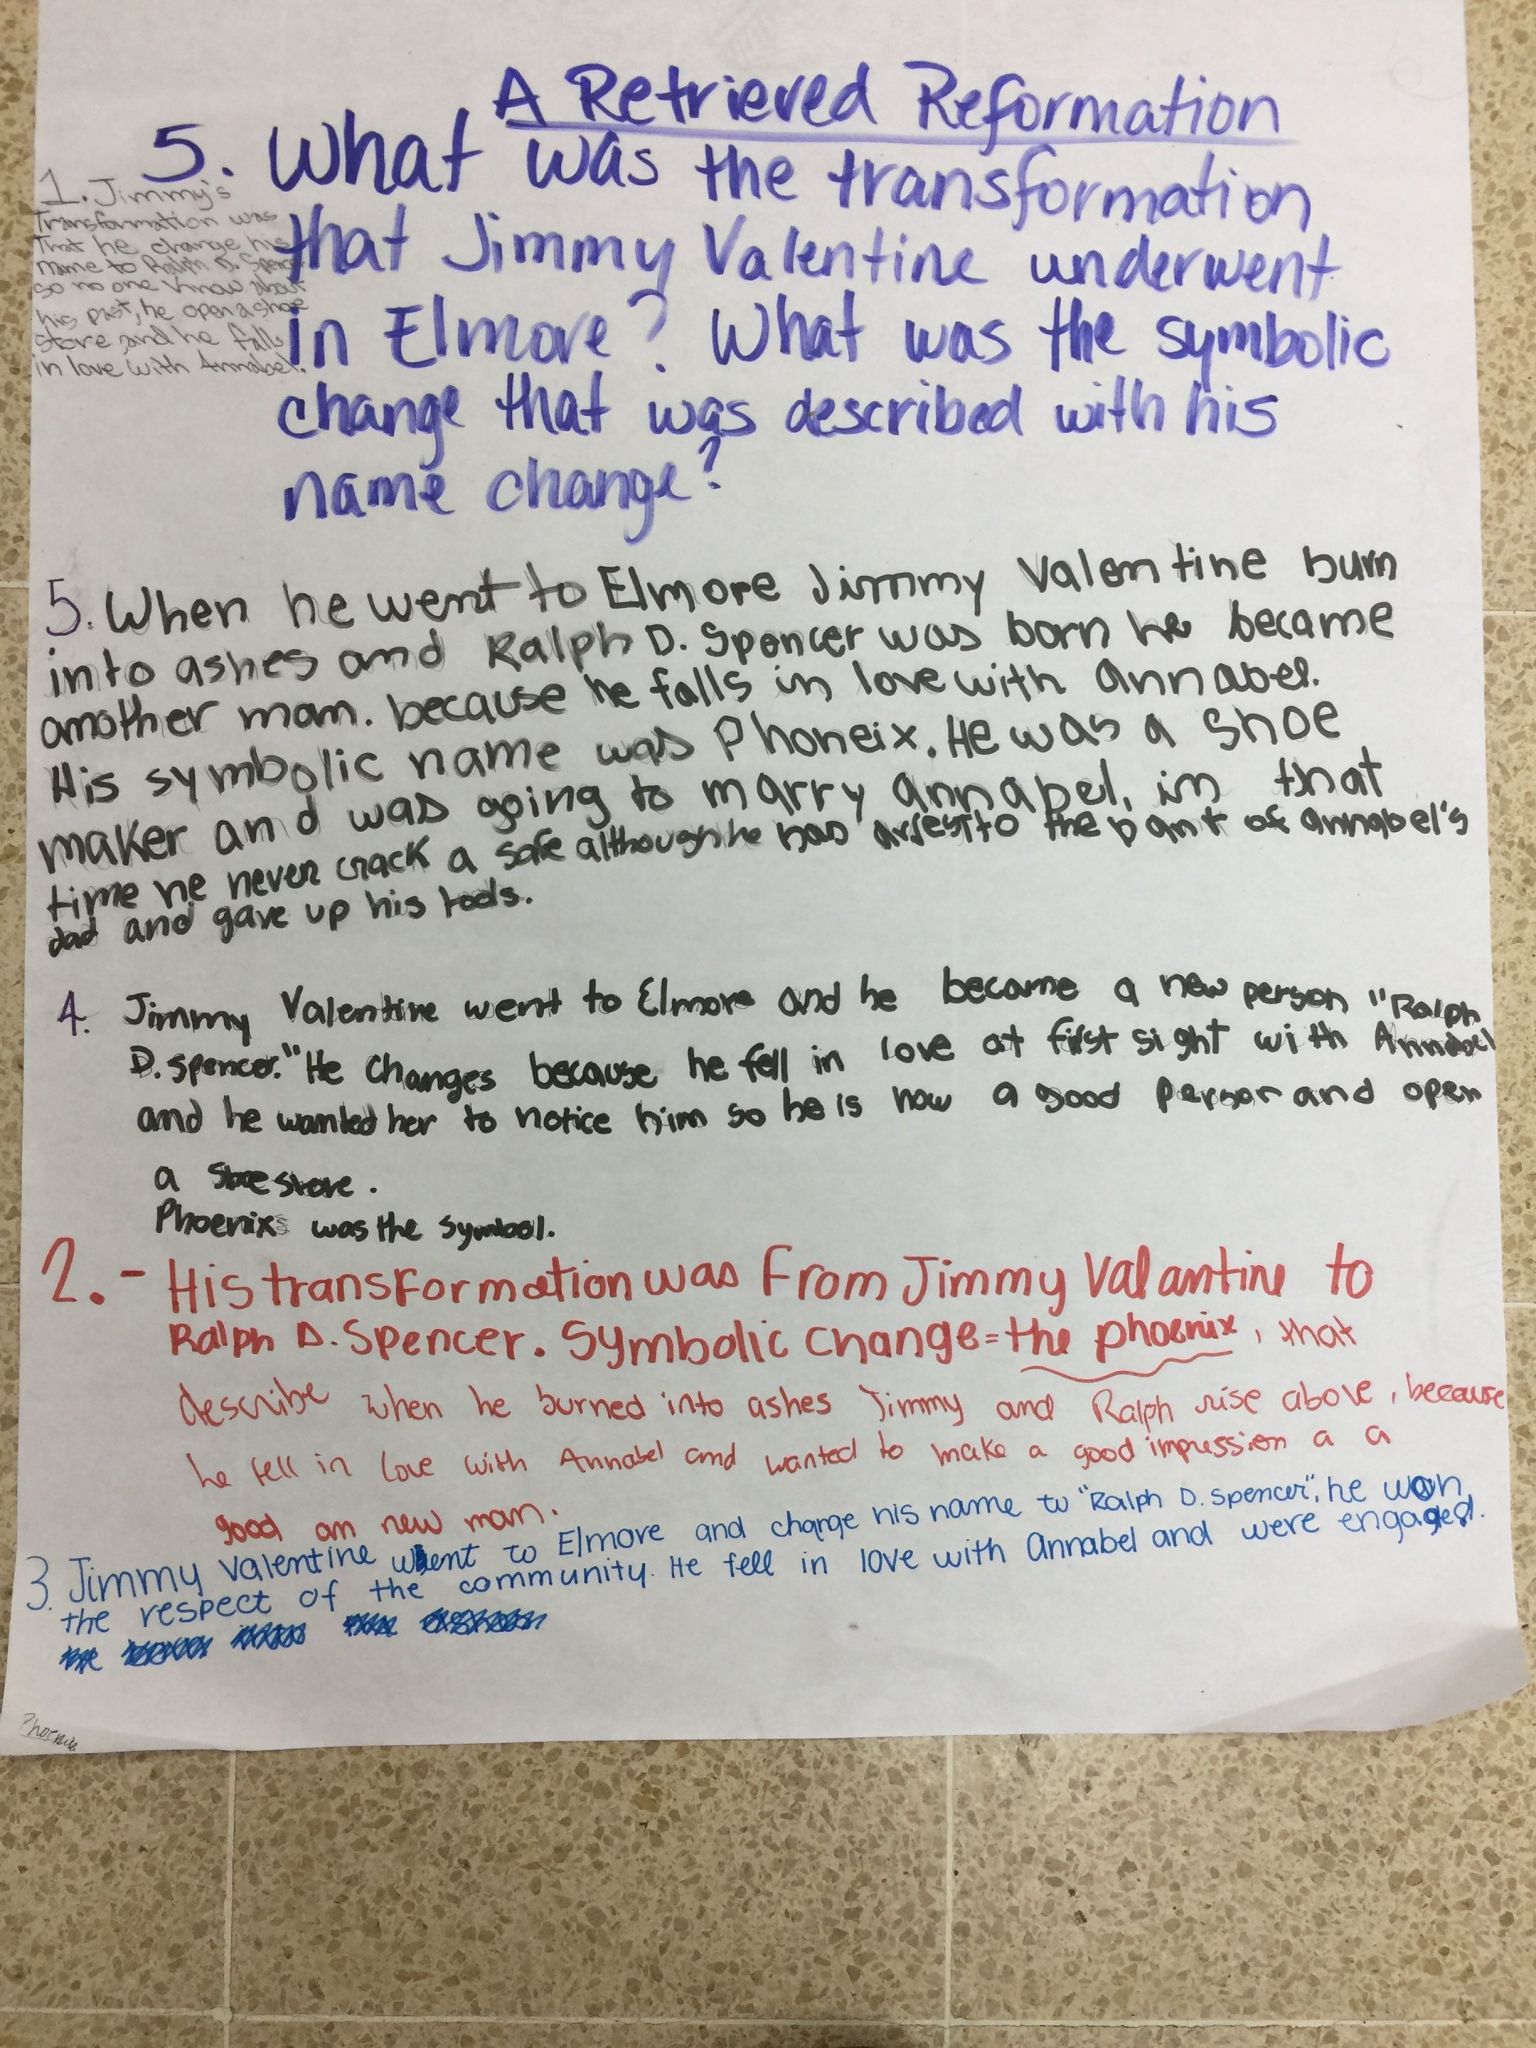 A Retrieved Reformation
5. What was the transformation
that Jimmy Valentine underwent
in Elmore? What was the symbolic
change that was described with his
name change?
1. Jimmy's
Transformation was
That he change his
name to Ralph D. Spencer
so no one know about
his past, he open a shoe
store and he falls
in love with Annabel.
5. When he went to Elmore Jimmy Valentine burn
into ashes and Ralph D. Spencer was born he became
another man. because he falls in love with annabel.
His symbolic name was Phoneix. He was a shoe
maker and was going to marry annabel, in that
time he never crack a safe although he has arrest to the bank of annabel's
dad and gave up his tools.
4. Jimmy Valentine went to Elmore and he became a new person "Ralph
D. Spencer." He changes because he fell in love at first sight with Annabel
and he wanted her to notice him so he is now a good person and open
a shoe store.
Phoenix was the symbol.
2.- His transformation was From Jimmy Valantine to
Ralph D. Spencer. Symbolic change = the phoenix, that
describe when he burned into ashes Jimmy and Ralph rise above, because
he fell in love with Annabel and wanted to make a good impression a a
good an new man.
3. Jimmy Valentine went to Elmore and change his name to "Ralph D. Spencer", he won
the respect of the community. He fell in love with Annabel and were engaged.
Phoenix